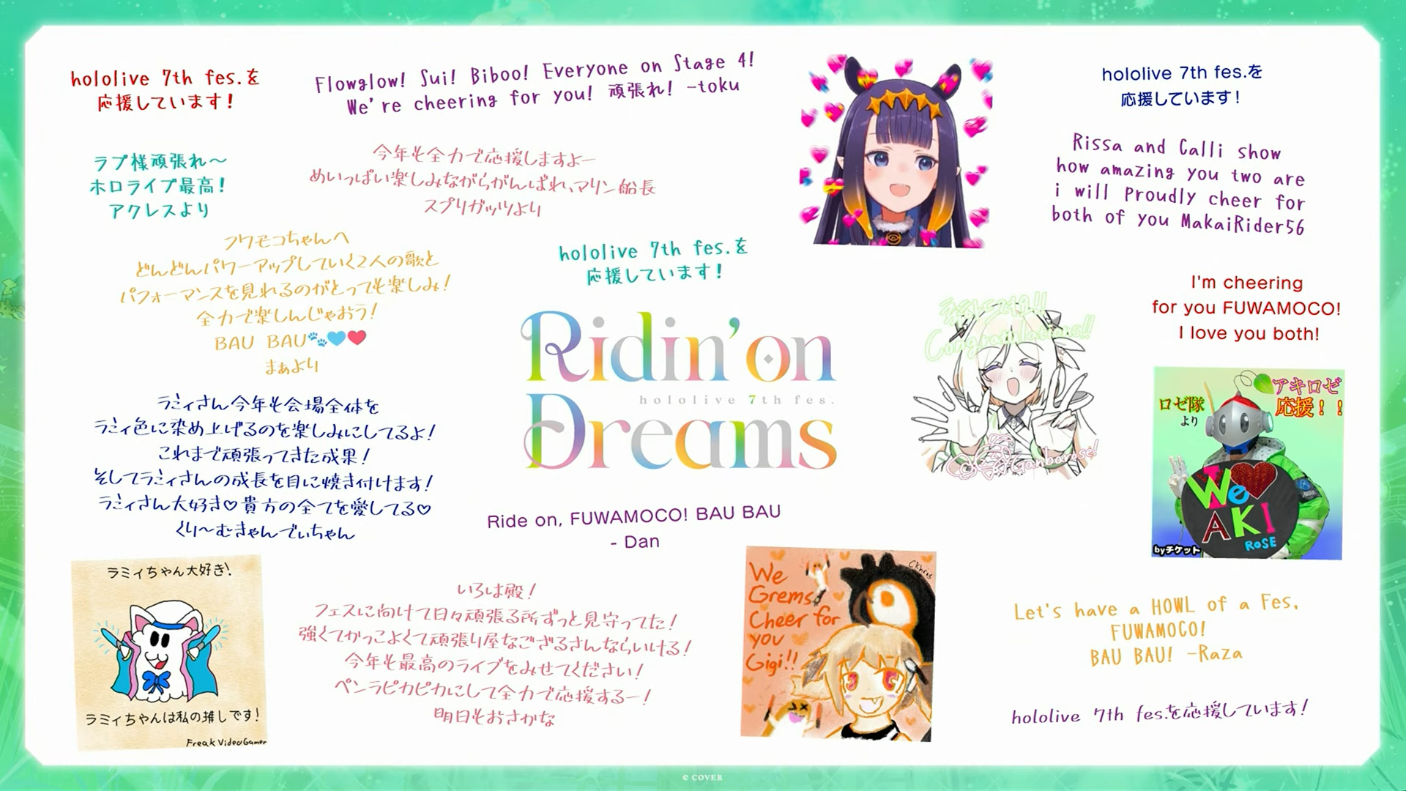 hololive 7th fes.を
応援しています!
Flowglow! Sui! Biboo! Everyone on Stage 4!
We're cheering for you! 頑張れ! -toku
hololive 7th fes.を
応援しています!
ラプ様頑張れ～
ホロライブ最高!
アクレスより
今年も全力で応援しますよー
めいっぱい楽しみながらがんばれ、マリン船長
スプリガッツより
Rissa and Calli show
how amazing you two are
i will Proudly cheer for
both of you MakaiRider56
フワモコちゃんへ
どんどんパワーアップしていく2人の歌と
パフォーマンスを見れるのがとっても楽しみ!
全力で楽しんじゃおう!
BAU BAU🐾🩵❤️
まぁより
hololive 7th fes.を
応援しています!
I'm cheering
for you FUWAMOCO!
I love you both!
Ridin'on
hololive 7th fes.
Dreams
ラミィさん今年も会場全体を
ラミィ色に染め上げるのを楽しみにしてるよ!
これまで頑張ってきた成果!
そしてラミィさんの成長を目に焼き付けます!
ラミィさん大好き♡貴方の全てを愛してる♡
くり～むきゃんでぃちゃん
アキロゼ
応援!!
ロゼ隊
より
We
AKI
ROSE
byチケット
Ride on, FUWAMOCO! BAU BAU
- Dan
ラミィちゃん大好き!
ラミィちゃんは私の推しです!
Freak VideoGamer
いろは殿!
フェスに向けて日々頑張る所ずっと見守ってた!
強くてかっこよくて頑張り屋なござるさんならいける!
今年も最高のライブをみせてください!
ペンラピカピカにして全力で応援するー!
明日もおさかな
We
Grems
Cheer for
you
Gigi!!
Let's have a HOWL of a Fes,
FUWAMOCO!
BAU BAU! -Raza
hololive 7th fes.を応援しています!
© COVER